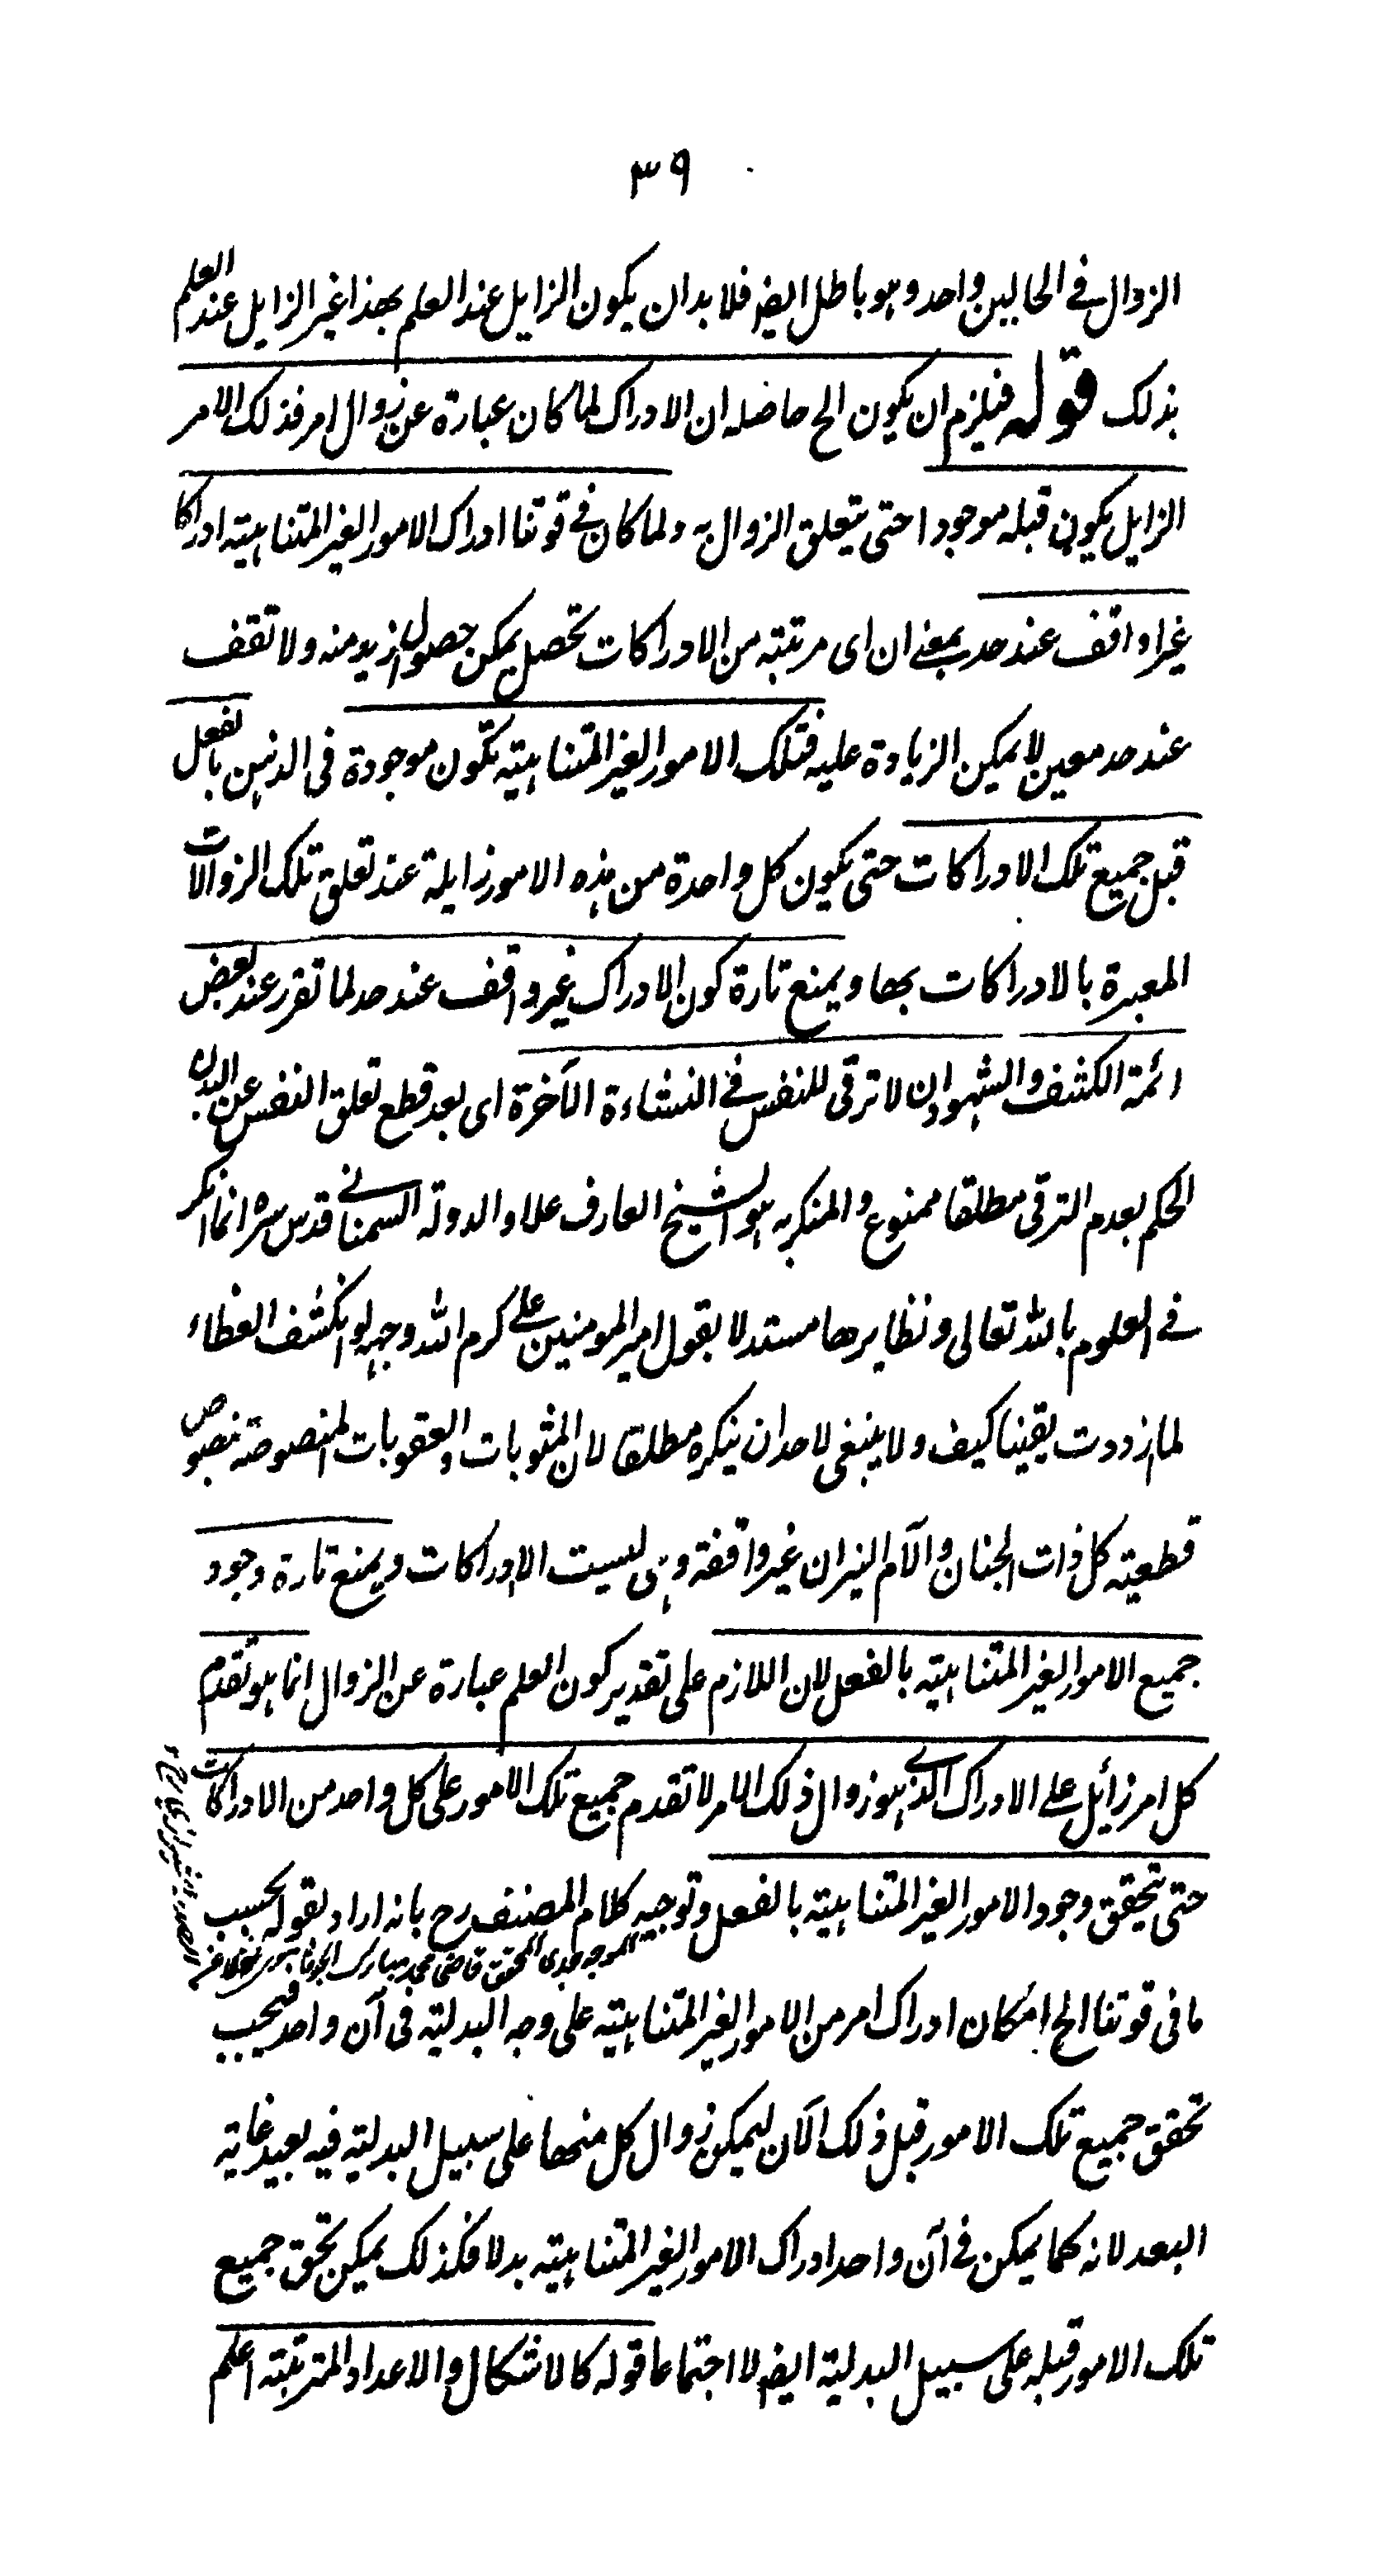 ٣٩
الزوال في الحالين واحد وهو باطل ايضا فلا بد ان يكون الزايل عند العلم بهذا غير الزايل عند العلم
بذلك قوله فيلزم ان يكون الخ حاصله ان الادراك لما كان عبارة عن زوال امر فذلك الامر
الزايل يكون قبله موجودا حتى يتعلق الزوال به ولما كان في قوتنا ادراك الامور الغير المتناهية ادراكا
غير واقف عند حد بمعنى ان اى مرتبة من الادراكات تحصل يمكن حصول ازيد منه ولا تقف
عند حد معين لا يمكن الزيادة عليه فتلك الامور الغير المتناهية تكون موجودة في الذهن بالفعل
قبل جميع تلك الادراكات حتى يكون كل واحدة من هذه الامور زايلة عند تعلق تلك الزوالات
المعبرة بالادراكات بها ويمنع تارة كون الادراك غير واقف عند حد لما تقرر عند بعض
ائمة الكشف والشهود ان لا ترقى للنفس في النشاءة الآخرة اى بعد قطع تعلق النفس عن البدن
الحكم بعدم الترقى مطلقا ممنوع والمنكر به هو الشيخ العارف علاو الدولة السمناني قدس سره انما انكر
في العلوم بالله تعالى ونظايرها مستدلا بقول امير المومنين على كرم الله وجهه لو انكشف الغطاء
لما ازددت يقينا كيف ولا ينبغى لاحد ان ينكره مطلقا لان المثوبات والعقوبات المنصوصة بنصوص
قطعية كلذات الجنان والآم النيران غير واقفة وهى ليست الا دراكات ويمنع تارة وجود
جميع الامور الغير المتناهية بالفعل لان اللازم على تقدير كون العلم عبارة عن الزوال انما هو تقدم
كل امر زأيل على الادراك الذى هو زوال ذلك الامر لا تقدم جميع تلك الامور على كل واحد من الادراكات
حتى يتحقق وجود الامور الغير المتناهية بالفعل وتوجيه كلام المصنف رح بانه اراد بقوله بحسب
الموجه جدى المحقق قاضى محمد مبارك
ما في قوتنا الخ امكان ادراك امر من الامور الغير المتناهية على وجه البدلية في آن واحد فيجب
تحقق جميع تلك الامور قبل ذلك الآن ليمكن زوال كل منها على سبيل البدلية فيه بعيد غاية
البعد لانه كما يمكن في آن واحد ادراك الامور الغير المتناهية بدلا فكذلك يمكن تحقق جميع
تلك الامور قبله على سبيل البدلية ايضا لا اجتماعا قوله كالاشكال والاعداد المترتبة اعلم